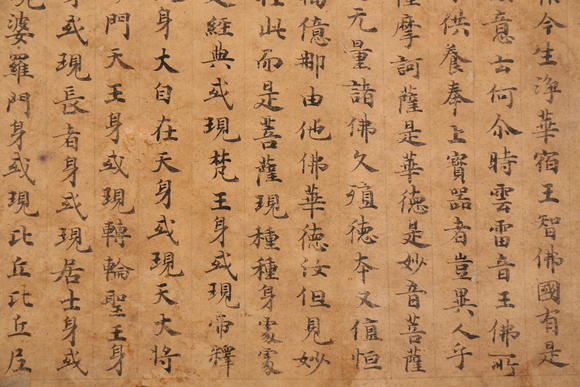 今生浄華宿王智佛國有是
意云何尒時雲雷音王佛所
供養奉上寶器者豈異人乎
薩摩訶薩是華德是妙音菩薩
无量諸佛久殖德本又值恒
億那由他佛華德汝但見妙
在此而是菩薩現種種身處處
是經典或現梵王身或現帝釋
身大自在天身或現天大將
門天王身或現轉輪聖王身
身或現長者身或現居士身或
現婆羅門身或現比丘比丘尼